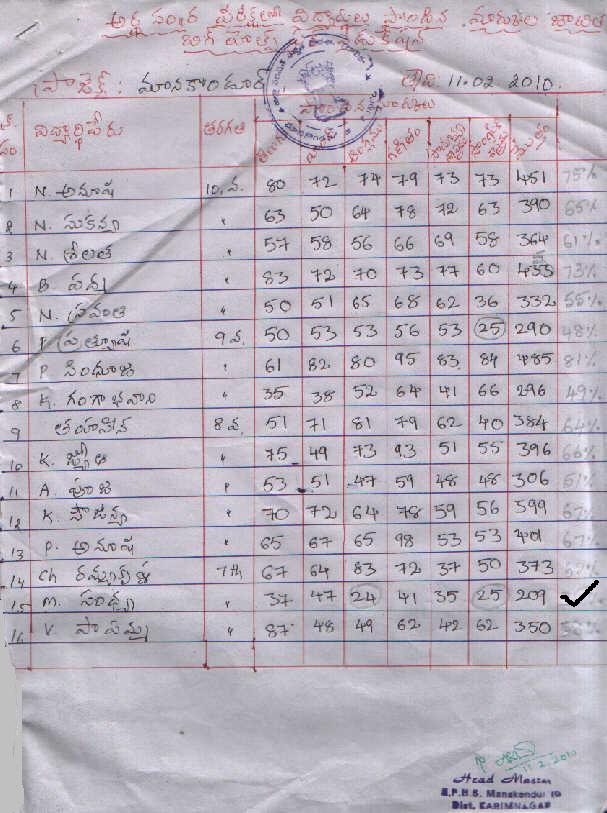 అర్థ సంవత్సర పరీక్షలలో విద్యార్థులు సాధించిన మార్కుల జాబితా
ప్రాజెక్ట్ : మానకొండూర్ తేది: 11.02 2010.
విద్యార్థి పేరు తరగతి గణితం
1 N. అనూష 10, వ. 80 72 74 79 73 73 451 75%
2 N. సుకన్య " 63 50 64 78 72 63 390 65%
3 N. శ్రీలత " 57 58 56 66 69 58 364 61%
4 B. పద్మ " 83 72 70 73 77 60 433 73%
5 N. స్రవంతి " 50 51 65 68 62 36 332 55%
6 ప్రత్యూష 9 వ. 50 53 53 56 53 25 290 48%
7 P. సింధూజ " 61 82 80 95 83 84 485 81%
8 K. గంగాభవాని " 35 38 52 64 41 66 296 49%
9 తహసీన 8 వ. 51 71 81 79 62 40 384 64%
10 K. " 75 49 73 93 51 55 396 66%
11 A. పూజ " 53 51 47 59 48 48 306 51%
12 K. సౌజన్య " 70 72 64 78 59 56 399 67%
13 P. అనూష " 65 67 65 98 53 53 401 67%
14 Ch రమ్యశ్రీ 7th 67 64 83 72 37 50 373 62%
15 M. సంధ్య " 37 47 24 41 35 25 209 ✓
16 V. " 87 48 49 62 42 62 350
11.2.2010
Head Master
Z.P.H.S. Manakondur (G)
Dist. KARIMNAGAR